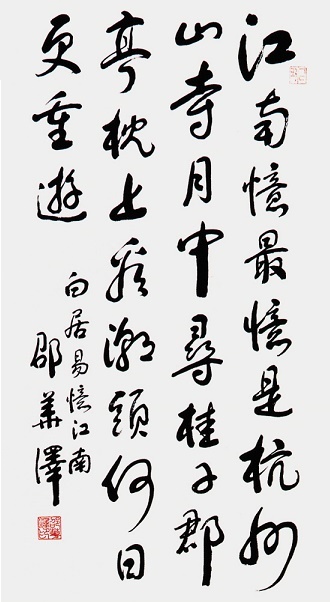 江南憶最憶是杭州
山寺月中尋桂子郡
亭枕上看潮頭何日
更重遊
白居易憶江南
邵華澤